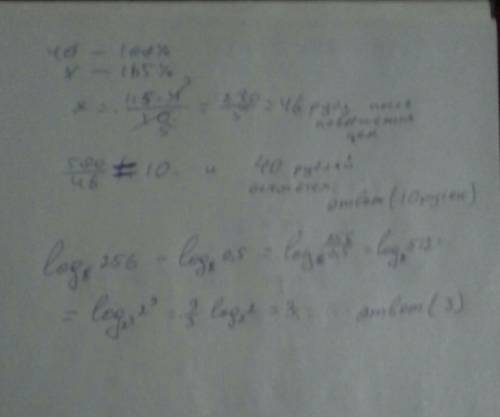 40 – 100%
x – 115%
x = 115·4 / = 230/5 = 46 руб после повышения цен
500/46 ≠ 10 и 40 рублей останется
ответ (10 ручек)
log₈256 – log₈0,5 = log₈ 256/0,5 = log₈512
= log₂³2⁹ = 9/3 log₂2 = 3. ответ (3)